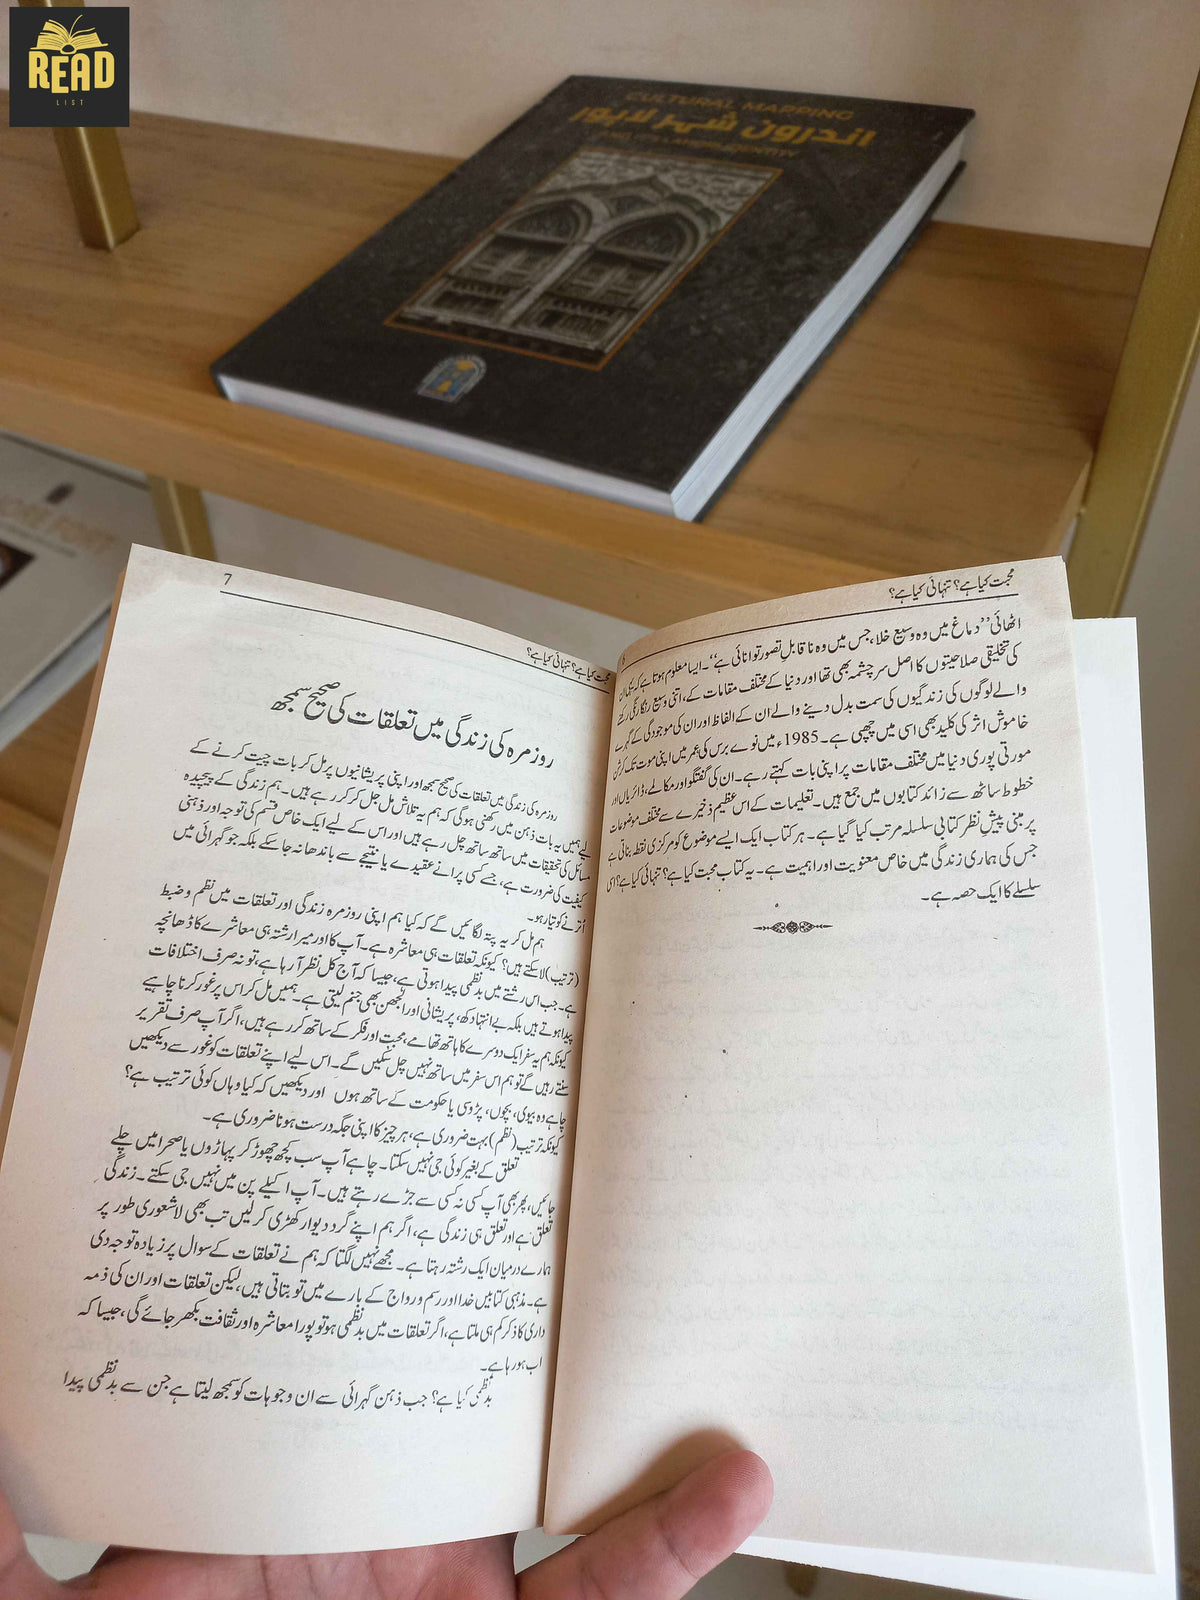 READ
LIST
CULTURAL MAPPING
اندرون شہر لاہور
AND ITS LAHORI IDENTITY
محبت کیا ہے؟ تنہائی کیا ہے؟
اٹھائی ’’دماغ میں وہ وسیع خلا، جس میں وہ ناقابلِ تصور توانائی ہے‘‘۔ ایسا معلوم ہوتا ہے کہ یہی ان
کی تخلیقی صلاحیتوں کا اصل سرچشمہ بھی تھا اور دنیا کے مختلف مقامات کے، اتنی وسیع رنگارنگی رکھنے
والے لوگوں کی زندگیوں کی سمت بدل دینے والے ان کے الفاظ اور ان کی موجودگی کے گہرے
خاموش اثر کی کلید بھی اسی میں چھپی ہے۔ 1985ء میں نوے برس کی عمر میں اپنی موت تک کرشن
مورتی پوری دنیا میں مختلف مقامات پر اپنی بات کہتے رہے۔ ان کی گفتگو اور مکالمے، ڈائریاں اور
خطوط ساٹھ سے زائد کتابوں میں جمع ہیں۔ تعلیمات کے اس عظیم ذخیرے سے مختلف موضوعات
پر مبنی پیشِ نظر کتابی سلسلہ مرتب کیا گیا ہے۔ ہر کتاب ایک ایسے موضوع کو مرکزی نقطہ بناتی ہے
جس کی ہماری زندگی میں خاص معنویت اور اہمیت ہے۔ یہ کتاب محبت کیا ہے؟ تنہائی کیا ہے؟ اسی
سلسلے کا ایک حصہ ہے۔
7
محبت کیا ہے؟ تنہائی کیا ہے؟
روزمرہ کی زندگی میں تعلقات کی صحیح سمجھ
روزمرہ کی زندگی میں تعلقات کی صحیح سمجھ اور اپنی پریشانیوں پر مل کر بات چیت کرنے کے
لیے ہمیں یہ بات ذہن میں رکھنی ہوگی کہ ہم یہ تلاش مل جل کر کر رہے ہیں۔ ہم زندگی کے پیچیدہ
مسائل کی تحقیقات میں ساتھ ساتھ چل رہے ہیں اور اس کے لیے ایک خاص قسم کی توجہ اور ذہنی
کیفیت کی ضرورت ہے، جسے کسی پرانے عقیدے یا نتیجے سے باندھا نہ جا سکے بلکہ جو گہرائی میں
اُترنے کو تیار ہو۔
ہم مل کر یہ پتہ لگائیں گے کہ کیا ہم اپنی روزمرہ زندگی اور تعلقات میں نظم و ضبط
(ترتیب) لا سکتے ہیں؟ کیونکہ تعلقات ہی معاشرہ ہے۔ آپ کا اور میرا رشتہ ہی معاشرے کا ڈھانچہ
ہے۔ جب اس رشتے میں بدنظمی پیدا ہوتی ہے، جیسا کہ آج کل نظر آ رہا ہے، تو نہ صرف اختلافات
پیدا ہوتے ہیں بلکہ بے انتہا دکھ، پریشانی اور الجھن بھی جنم لیتی ہے۔ ہمیں مل کر اس پر غور کرنا چاہیے
کیونکہ ہم یہ سفر ایک دوسرے کا ہاتھ تھامے، محبت اور فکر کے ساتھ کر رہے ہیں، اگر آپ صرف تقریر
سنتے رہیں گے تو ہم اس سفر میں ساتھ نہیں چل سکیں گے۔ اس لیے اپنے تعلقات کو غور سے دیکھیں
چاہے وہ بیوی، بچوں، پڑوسی یا حکومت کے ساتھ ہوں اور دیکھیں کہ کیا وہاں کوئی ترتیب ہے؟
کیونکہ ترتیب (نظم) بہت ضروری ہے، ہر چیز کا اپنی جگہ درست ہونا ضروری ہے۔
تعلق کے بغیر کوئی جی نہیں سکتا۔ چاہے آپ سب کچھ چھوڑ کر پہاڑوں یا صحرا میں چلے
جائیں، پھر بھی آپ کسی نہ کسی سے جڑے رہتے ہیں۔ آپ اکیلے پن میں نہیں جی سکتے۔ زندگی
تعلق ہے اور تعلق ہی زندگی ہے، اگر ہم اپنے گرد دیوار کھڑی کر لیں تب بھی لاشعوری طور پر
ہمارے درمیان ایک رشتہ رہتا ہے۔ مجھے نہیں لگتا کہ ہم نے تعلقات کے سوال پر زیادہ توجہ دی
ہے۔ مذہبی کتابیں خدا اور رسم و رواج کے بارے میں تو بتاتی ہیں، لیکن تعلقات اور ان کی ذمہ
داری کا ذکر کم ہی ملتا ہے، اگر تعلقات میں بدنظمی ہو تو پورا معاشرہ اور ثقافت بکھر جائے گی، جیسا کہ
اب ہو رہا ہے۔
بدنظمی کیا ہے؟ جب ذہن گہرائی سے ان وجوہات کو سمجھ لیتا ہے جن سے بدنظمی پیدا